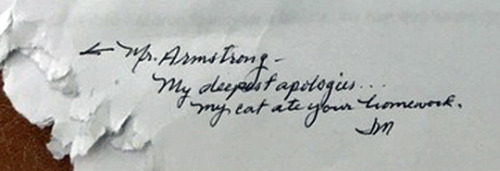 ← Mr. Armstrong -
My deepest apologies...
my cat ate your homework.
JM